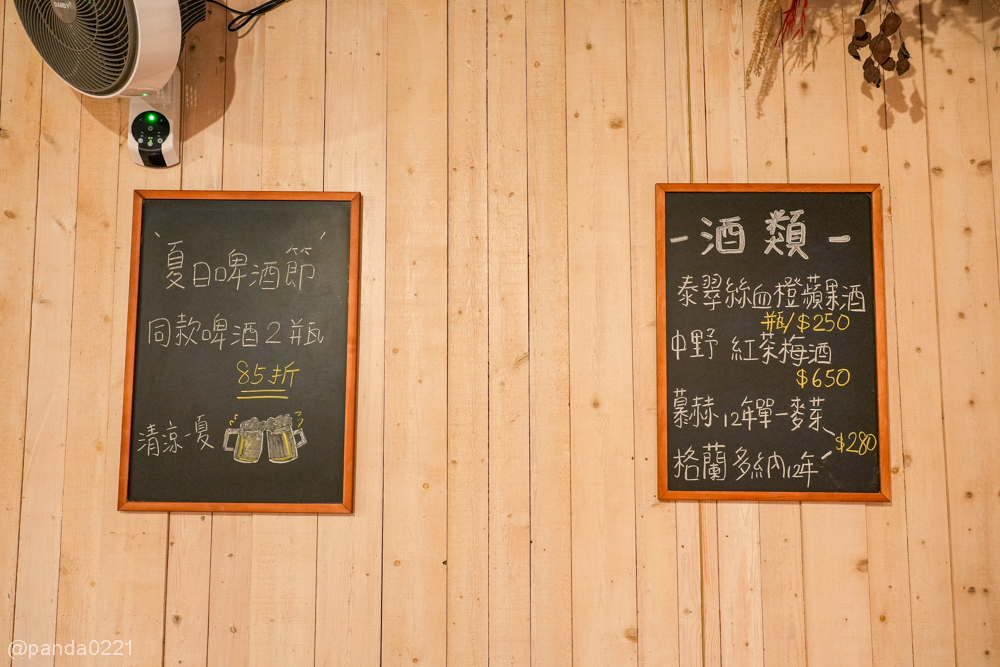 夏日啤酒節
同款啤酒2瓶
85折
清涼一夏
-酒類-
泰翠絲血橙蘋果酒
瓶/$250
中野 紅茶梅酒
$650
慕赫12年單一麥芽
$280
格蘭多納12年
@panda0221